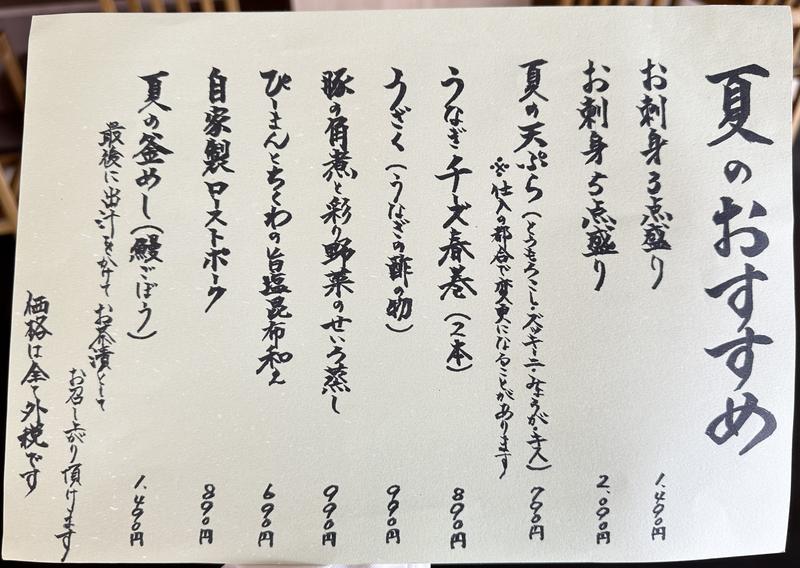 夏のおすすめ
お刺身3点盛り 1.490円
お刺身5点盛り 2.090円
夏の天ぷら(とうもろこし・ズッキーニ・みょうが・キス) 790円
※仕入の都合で変更になることがあります
うなぎチーズ春巻(2本) 890円
うざく(うなぎの酢の物) 990円
豚の角煮と彩り野菜のせいろ蒸し 990円
ぴーまんとちくわの旨塩昆布和え 690円
自家製ローストポーク 890円
夏の釜めし(鰻ごぼう) 1.490円
最後に出汁をかけてお茶漬として
お召し上がり頂けます
価格は全て外税です